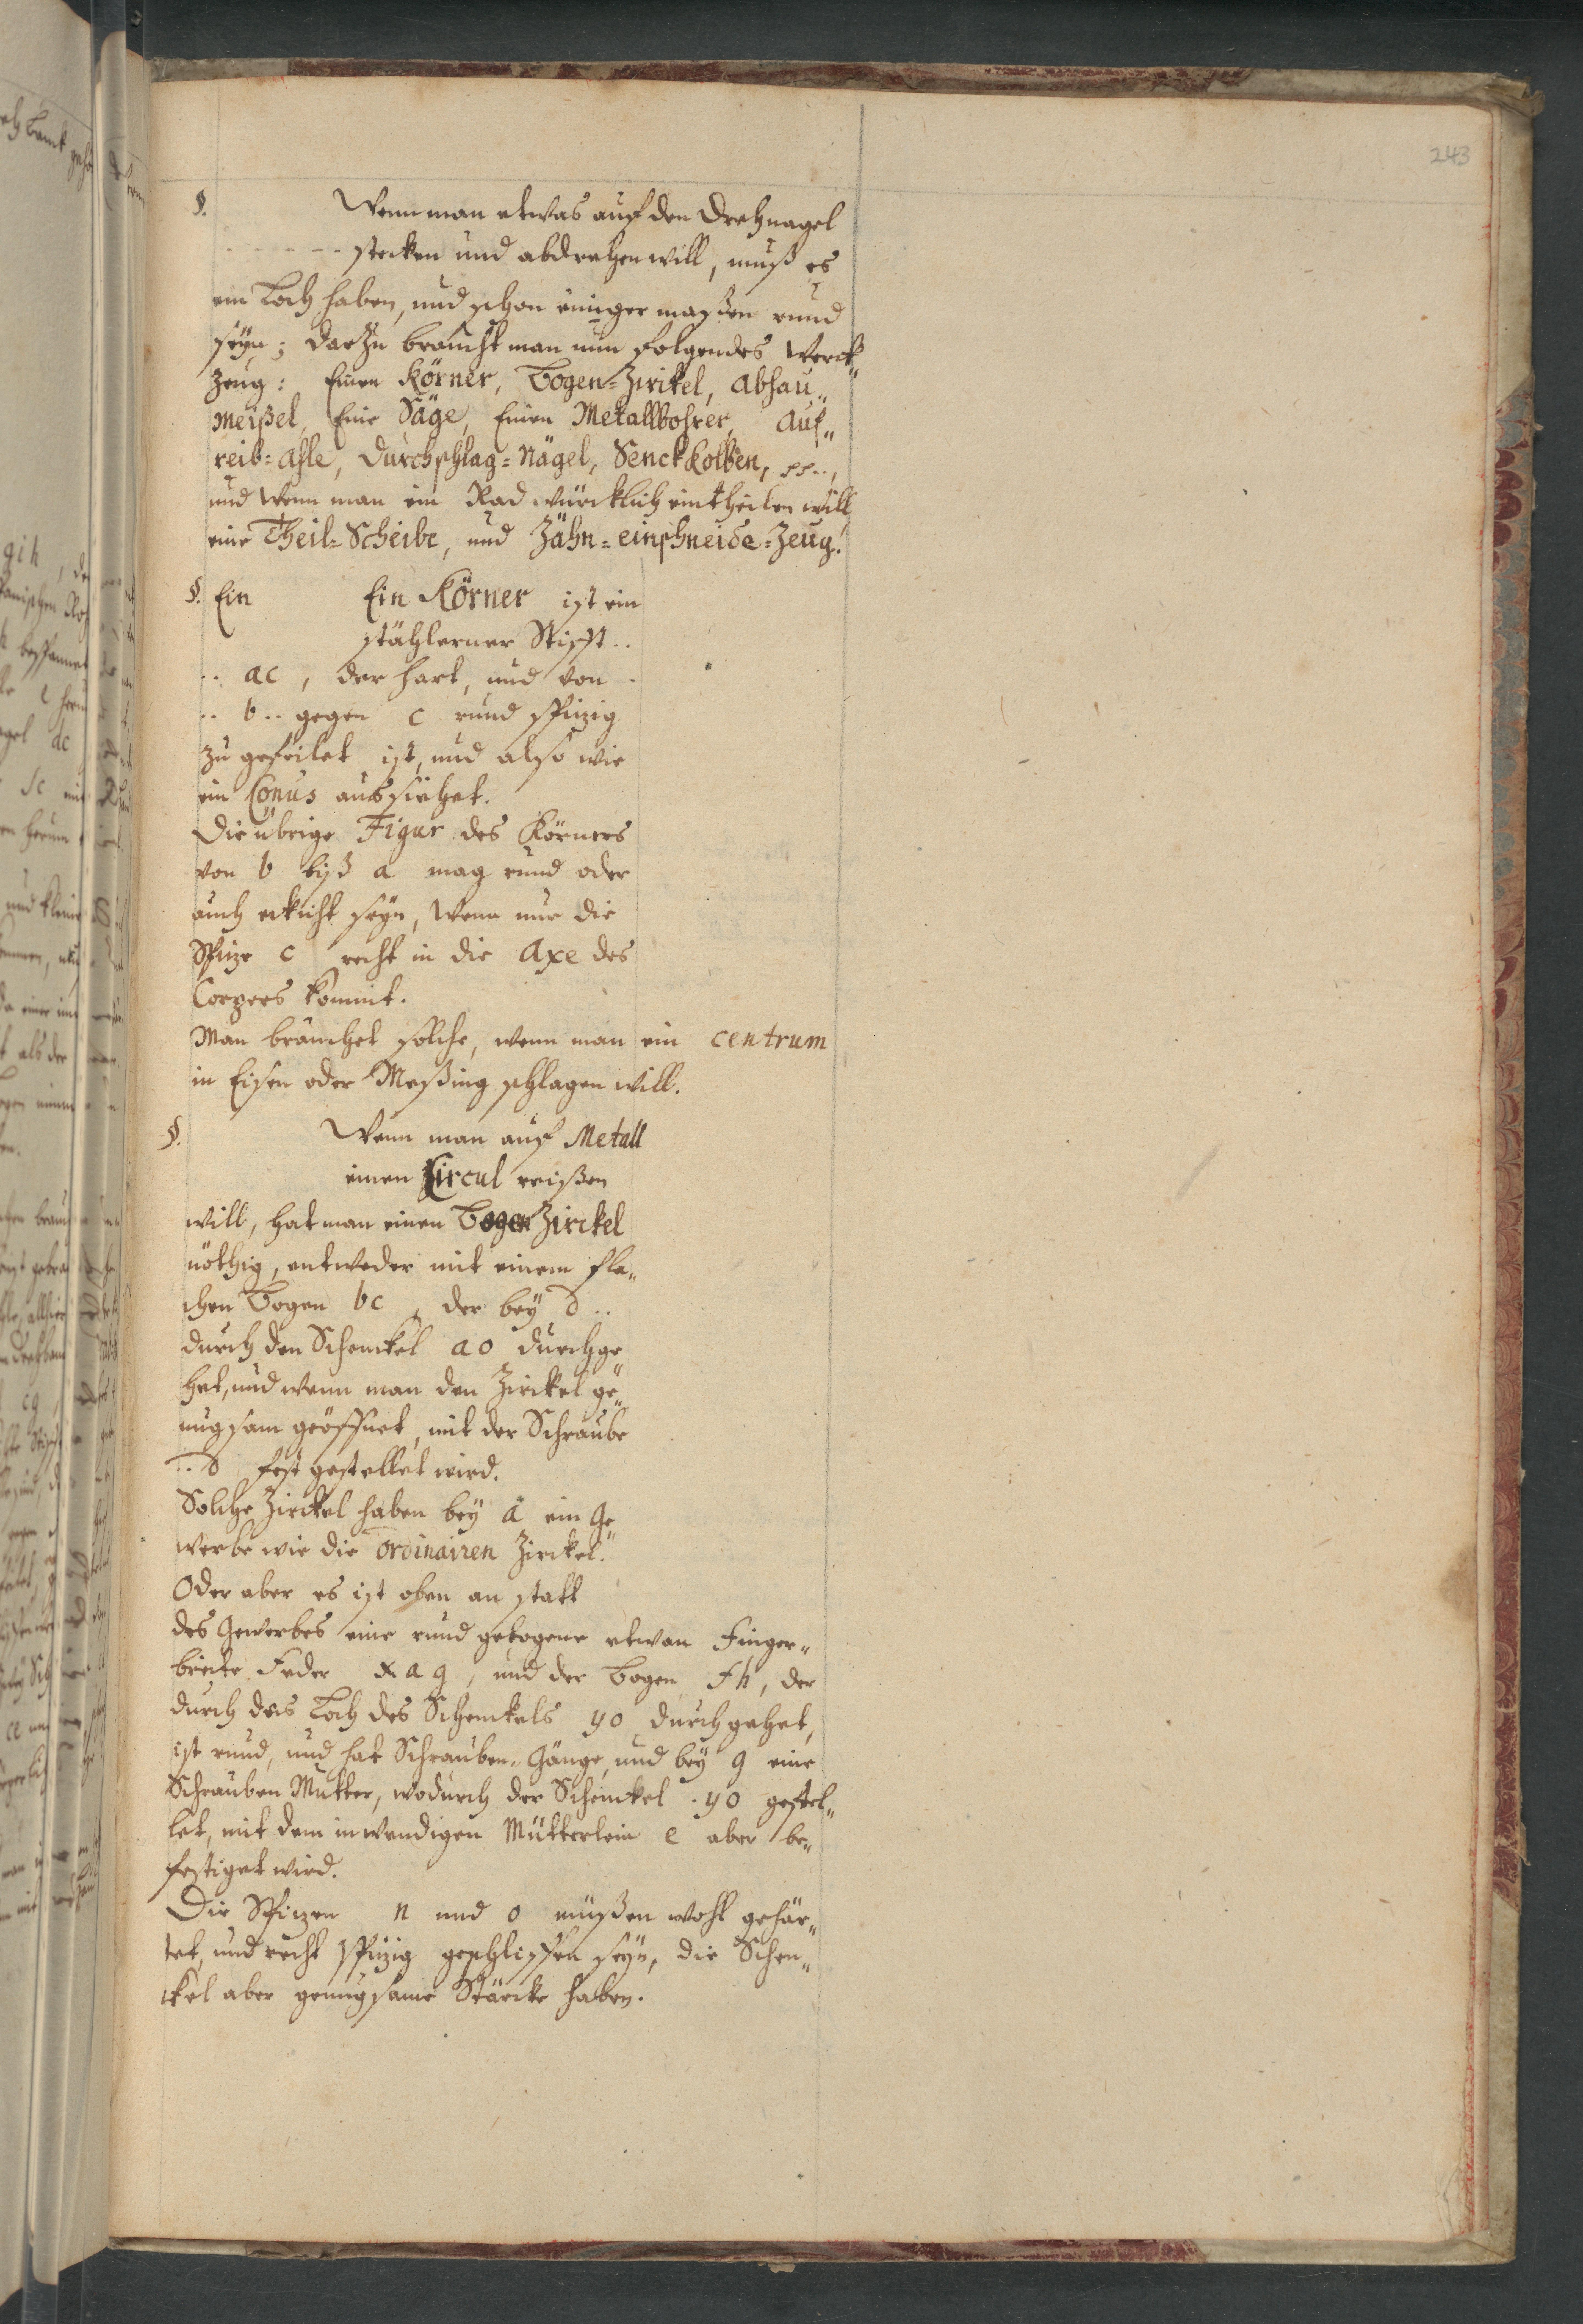 243
§. Wenn man etwas auf den Drehnagel
stecken und abdrehen will, muß es
ein Loch haben, und schon einiger maßen rund
seyn; darzu braucht man nun folgendes Werck„
zeug: Einen Körner, Bogen=Zirckel, Abhau„
meißel, Eine Säge, Einen Metallbohrer, Auf„
reib=Ahle, Durchschlag=Nägel, Senckkolben,
und wenn man ein Rad würcklich eintheilen will
eine Theil=Scheibe, und Zähn=einschneide=Zeug.
§. Ein Ein Körner ist ein
stählerner Stifft..
.. ac, der hart, und von
.. b.. gegen c rund spizig
zu gefeilet ist, und also wie
ein Conus aussiehet.
Die übrige Figur des Körners
von b biß a mag rund oder
auch eckicht seyn, wenn nur die
Spize c recht in die Axe des
Corpers kommt.
Man brauchet solche, wenn man ein centrum
in Eisen oder Meßing schlagen will.
§. Wenn man auf Metall
einen Circul reißen
will, hat man einen Bogen Zirckel
nöthig, entweder mit einem fla„
chen Bogen bc, der bey d..
durch den Schenckel ao durchge„
het, und wenn man den Zirckel ge„
nugsam geöffnet, mit der Schraube
.. d fest gestellet wird.
Solche Zirckel haben bey a ein Ge„
werbe wie die ordinairen Zirckel.
Oder aber es ist oben an statt
des Gewerbes eine rund gebogene etwan Finger„
breite Feder xag, und der Bogen fh, der
durch das Loch des Schenckels yo durchgehet,
ist rund, und hat Schrauben=Gänge, und bey g eine
Schrauben Mutter, wodurch der Schenckel yo gestel„
let, mit dem inwendigen Mütterlein e aber be„
festiget wird.
Die Spizen n und o müßen wohl gehär„
tet, und recht spizig geschliffen seyn, die Schen„
ckel aber genugsame Stärcke haben.